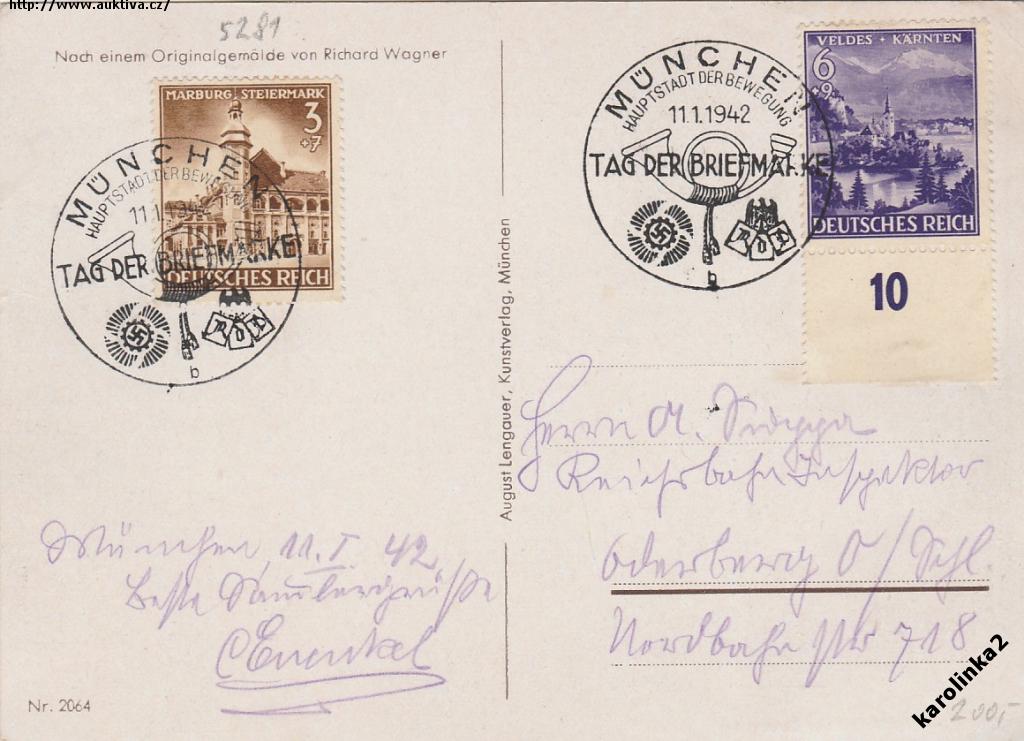 http://www.auktiva.cz/
5281
Nach einem Originalgemälde von Richard Wagner
MARBURG, STEIERMARK
3
+7
DEUTSCHES REICH
MÜNCHEN
HAUPTSTADT DER BEWEGUNG
11.1.1942
TAG DER BRIEFMARKE
b
VELDES + KÄRNTEN
6
+9
DEUTSCHES REICH
MÜNCHEN
HAUPTSTADT DER BEWEGUNG
11.1.1942
TAG DER BRIEFMARKE
b
10
August Lengauer, Kunstverlag, München
Herrn A.
Reichsbahn Inspektor
Oderberg O/Schl.
Nordbahnstr 718
München, 11.I.42
Beste Sammlergrüße
Nr. 2064
karolinka2
200,-